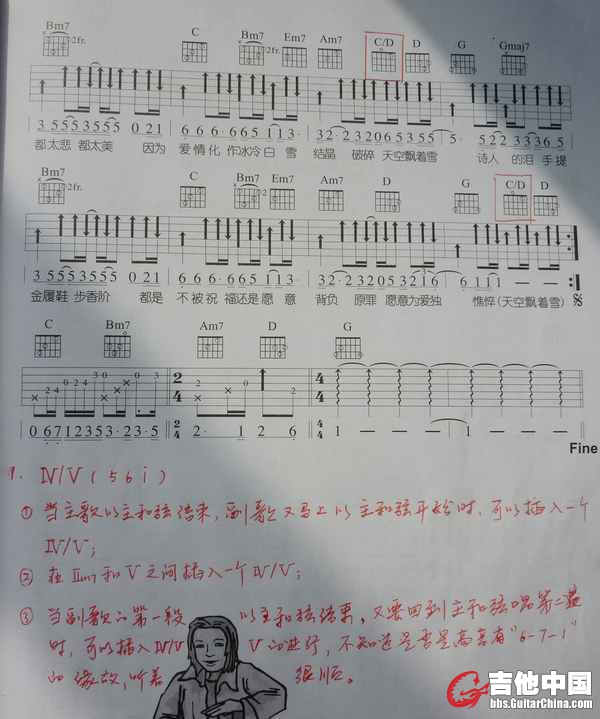 Bm7 C Bm7 Em7 Am7 C/D D G Gmaj7
2fr. 2fr.
3 5 5 5 3 5 5 5 0 2 1 6 6 6 · 6 6 5 1 1 3 · 3 2 · 3 2 0 6 0 5 3 5 5 5 · 5 2 2 3 3 0 5
都太悲 都太美 因为 爱情化 作冰冷白 雪 结晶 破碎 天空飘着雪 诗人 的泪 手提
Bm7 C Bm7 Em7 Am7 D G C/D D
2fr. 2fr.
金履鞋 步香阶 都是 不被祝 福还是愿 意 背负 原罪 愿意为爱独 憔悴(天空飘着雪)
C Bm7 Am7 D G
2 4 4 4
0 6 7 1 2 3 5 3 · 2 3 · 5 2/4 2 · 1 2 6 4/4 1 — — — 1 — — —
Fine
1. Ⅳ/Ⅴ(5 6 i)
① 当主歌以主和弦结束,副歌又马上以主和弦开始时,可以插入一个
Ⅳ/Ⅴ;
② 在Ⅱm7和Ⅴ之间插入一个Ⅳ/Ⅴ;
③ 当副歌的第一段 以主和弦结束,又要回到主和弦唱第二段
时,可以插入Ⅳ/Ⅴ Ⅴ的进行,不知道是否是高音有“6-7-1”
的缘故,听着 很顺。
吉他中国
bbs.GuitarChina.com